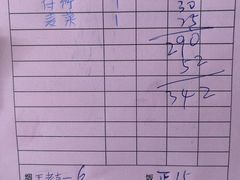 付竹 1 30
麦菜 1 25
290
52
342
王老吉一6
饭 正 15